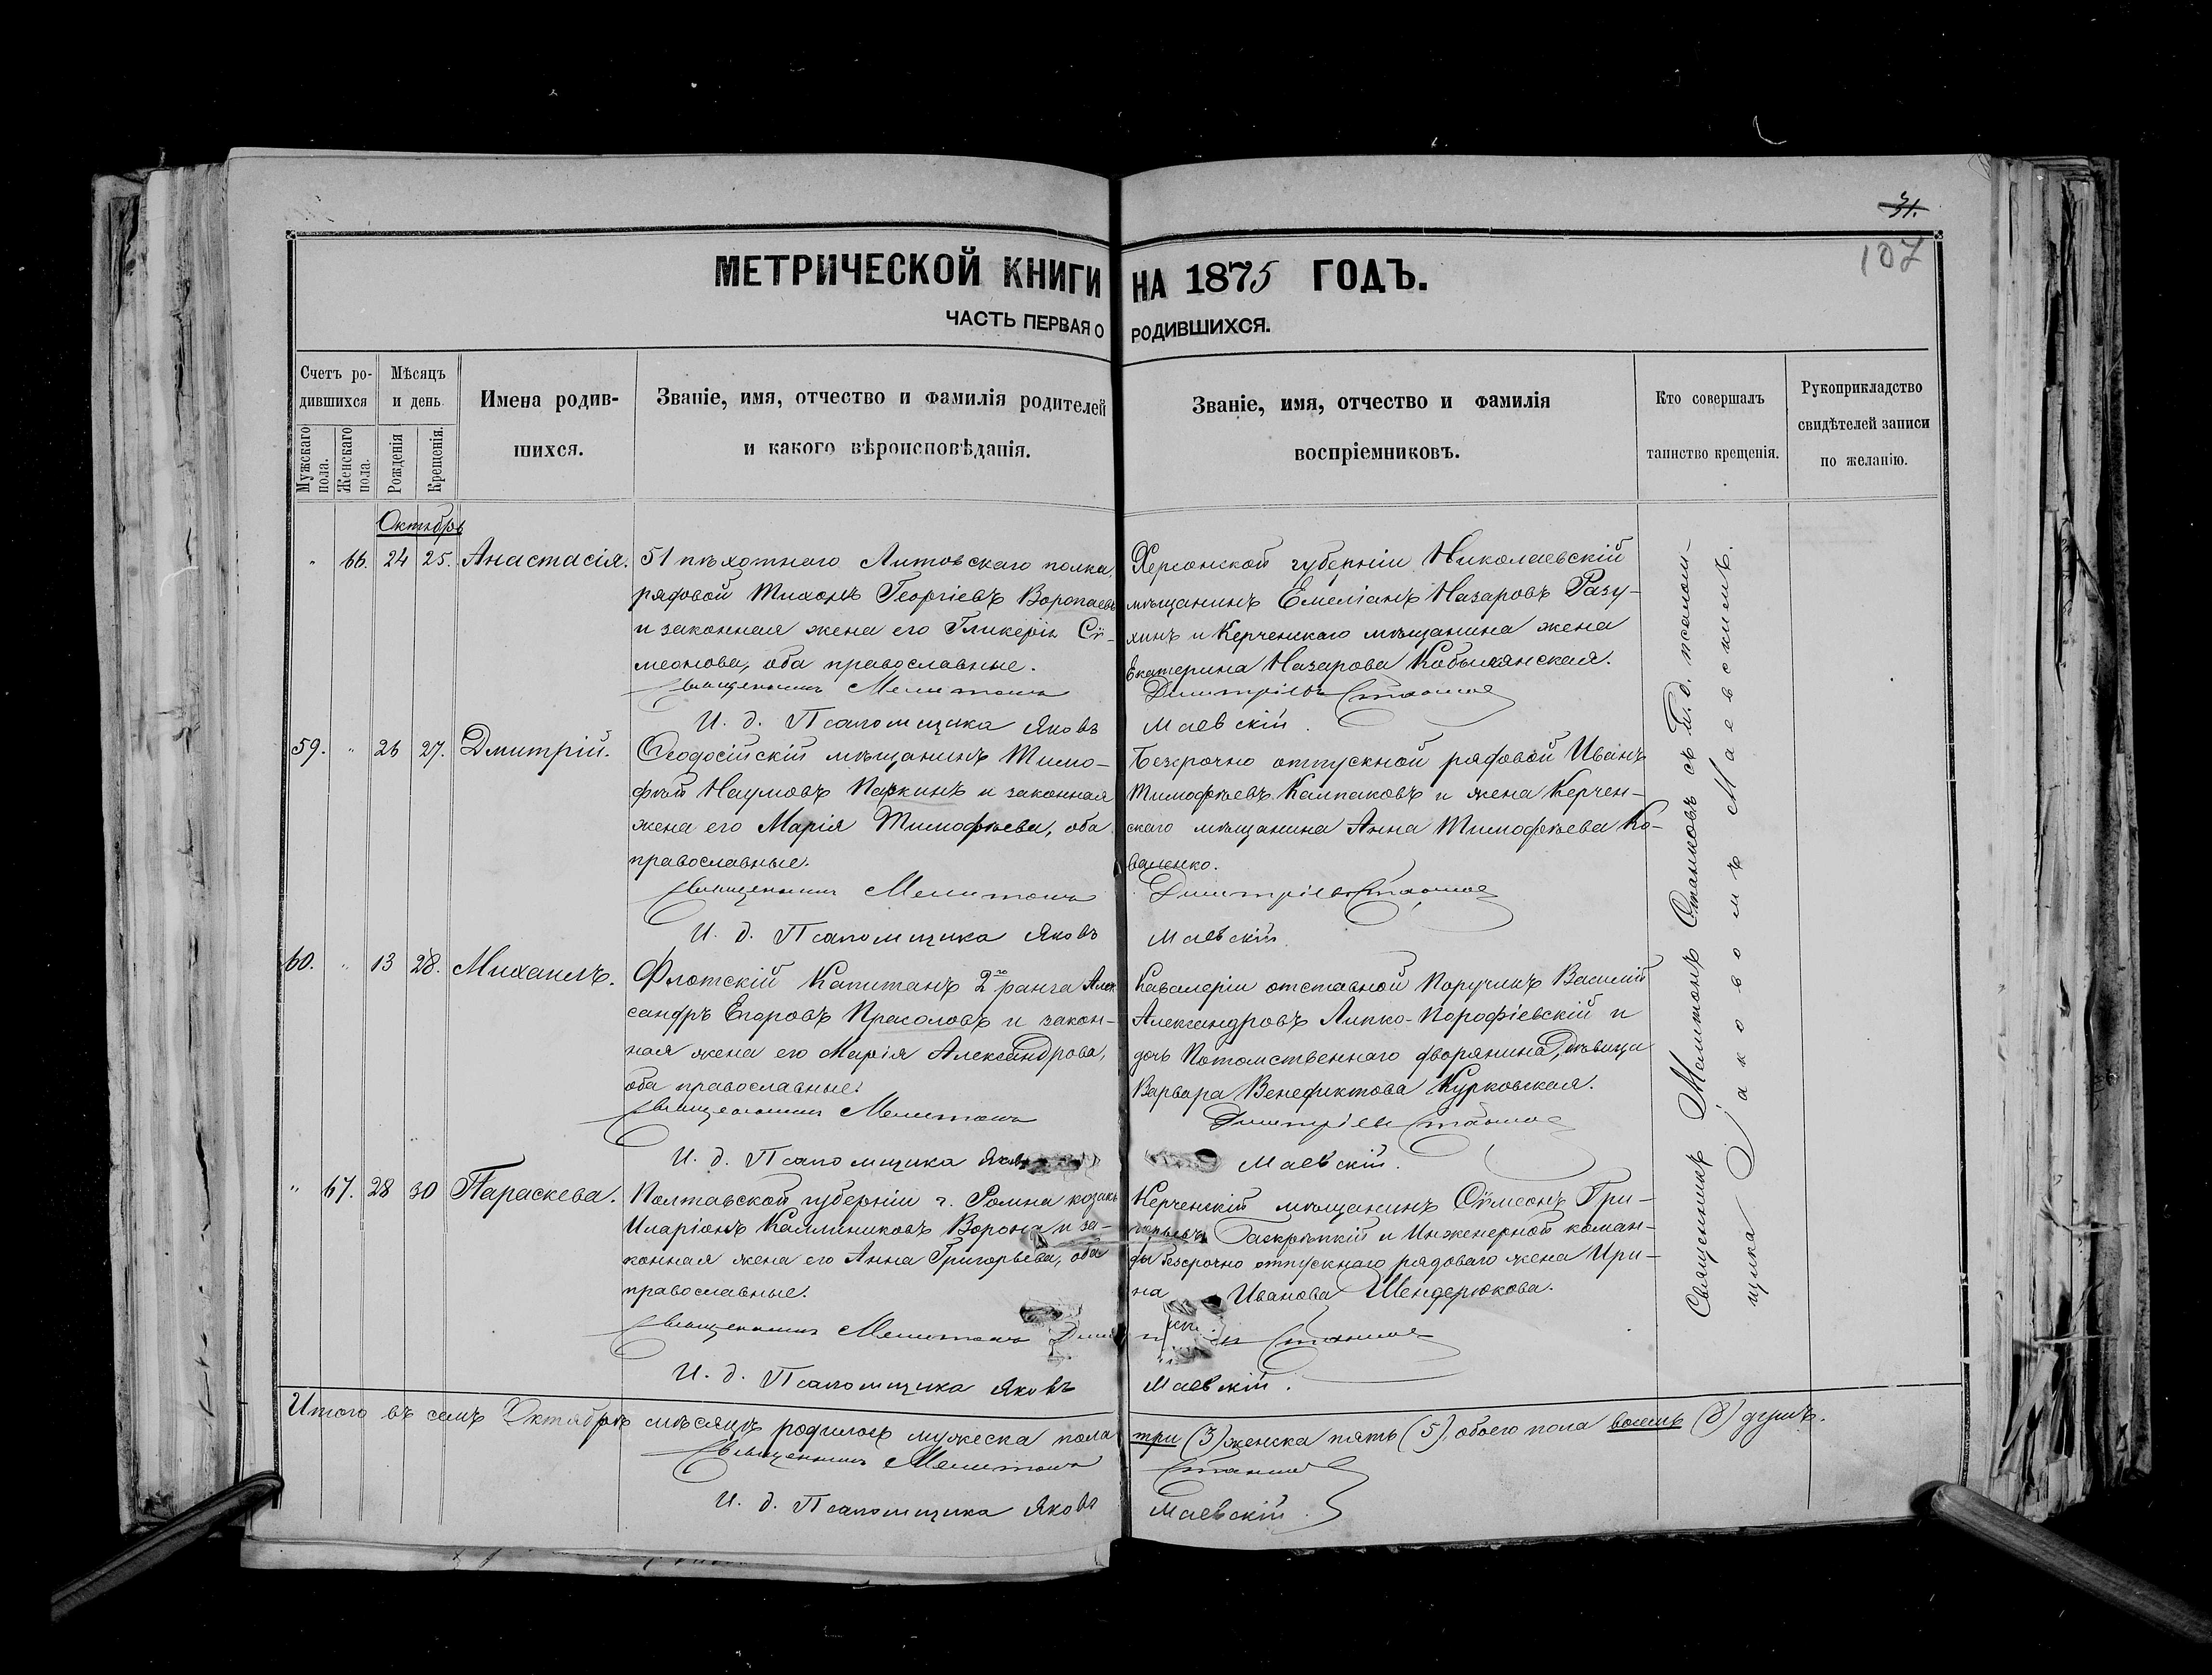 31.
107
МЕТРИЧЕСКОЙ КНИГИ НА 1875 ГОДЪ.
ЧАСТЬ ПЕРВАЯ О РОДИВШИХСЯ.
Счетъ родившихся
Мужскаго пола.
Женскаго пола.
Мѣсяцъ и день.
Рожденія
Крещенія.
Имена родившихся.
Званіе, имя, отчество и фамилія родителей
и какого вѣроисповѣданія.
Званіе, имя, отчество и фамилія
воспріемниковъ.
Кто совершалъ
таинство крещенія.
Рукоприкладство
свидѣтелей записи
по желанію.
Октябрь
" 66. 24 25. Анастасія.
51 пѣхотнаго Литовскаго полка,
рядовой Тихонъ Георгіевъ Воропаевъ
и законная жена его Гликерія Сѵ-
меонова, оба православные.
Священникъ Мелитонъ
И. д. Псаломщика Яковъ
Херсонской губерніи Николаевскій
мѣщанинъ Емеліанъ Назаровъ Разу-
хинъ и Керченскаго мѣщанина жена
Екатерина Назарова Кобылянская.
Димитріевъ Станков
Маевскій.
59. " 26 27. Дмитрій.
Ѳеодосійскій мѣщанинъ Тимо-
фей Наумовъ Паркинъ и законная
жена его Марія Тимофѣева, оба
православные.
Священникъ Мелитонъ
И. д. Псаломщика Яковъ
Безсрочно отпускной рядовой Иванъ
Тимофѣевъ Калпаковъ и жена Керчен-
скаго мѣщанина Анна Тимофѣева Ко-
валенко.
Димитріевъ Станков
Маевскій.
60. " 13 28. Михаилъ.
Флотскій Капитанъ 2го ранга Алек-
сандръ Егоровъ Прасоловъ и закон-
ная жена его Марія Александрова,
оба православные.
Священникъ Мелитонъ
И. д. Псаломщика Яковъ
Кавалеріи отставной Поручикъ Василій
Александровъ Липко-Порофіевскій и
дочь Потомственнаго дворянина, дѣвица
Варвара Венедиктова Курковская.
Димитріевъ Станков
Маевскій.
" 67. 28 30 Параскева.
Полтавской губерніи г. Ромна козакъ
Иларіонъ Каллиниковъ Ворона и за-
конная жена его Анна Григорьева, оба
православные.
Священникъ Мелитонъ
И. д. Псаломщика Яковъ
Керченскій мѣщанинъ Сѵмеонъ Гри-
горьевъ и Инженерной коман-
ды безсрочно отпускнаго рядоваго жена Ири-
на Иванова Шендерюкова.
Станков
Маевскій.
Священникъ Мелитонъ Станковъ съ И. д. псалом-
щика Яковомъ Маевскимъ.
Итого въ семъ Октябрѣ мѣсяцѣ родилось мужеска пола три (3) женска пять (5), обоего пола восемь (8) душъ.
Священникъ Мелитонъ Станков
И. д. Псаломщика Яковъ Маевскій.